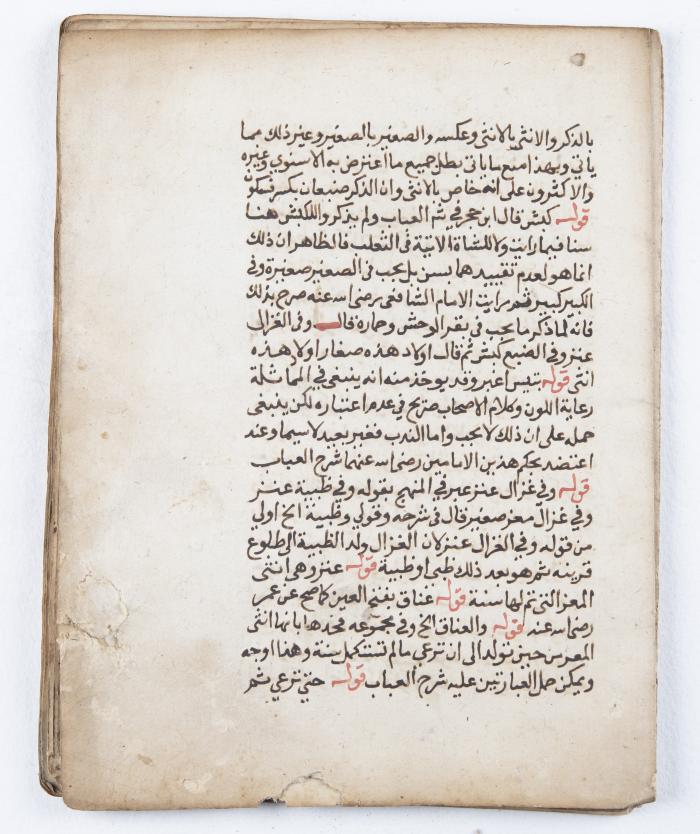 بالذكر والانثى بالانثى وعكسه والصغير بالصغير وغير ذلك مما
ياتي وبهذا مع ماياتي بطل جميع ما اعترض به الاسنوي وغيره
والاكثرون على انه خاص بالانثى وان الذكر ضبعان بكسر فسكون
قوله كبش قال ابن حجر في شم العباب ولم يذكروا للكبش هنا
سنا فيما رايت ولا للشاة الاتية في الثعلب فالظاهر ان ذلك
انما هو لعدم تقييدهما بسن بل يجب في الصغير صغيرة وفي
الكبير كبير ثم رايت الامام الشافعي رضى اسه عنه صرح بذلك
فانه لما ذكر ما يجب في بقر الوحش وحماره قال وفى الغزال
عنز وفي الضبع كبش ثم قال اولاد هذه صغار اولاد هذه
انتى قوله تيس اعبر وقد يوخذ منه انه ينبغي في المماثلة
رعاية اللون وكلام الاصحاب صريح في عدم اعتباره لكن ينبغى
حمله على ان ذلك لا يجب واما الندب فغير بعيد لا سيما وعند
اعتضد بحكم هذين الامامين رضى اسه عنهما شرح العباب
قوله وفي غزال عنز عبر في المنهج بقوله وفي ظبية عنز
وفي غزال معز صغير قال فى شرحه وقولي وظبية الخ اولي
من قوله وفي الغزال عنز لان الغزال ولد الظبية الى طلوع
قرينه ثم هو بعد ذلك ظبى او ظبية قوله عنز وهى انثى
المعز التي تم لها سنة قوله عناق بفتح العين كما صح عن عمر
رضى اسه عنه قوله والعناق الخ وفي مجموعه تحدها بانها انثى
المعز من حين تولد الى ان ترعى مالم تستكمل سنة وهذا اوجه
ويمكن حمل العبارتين عليه شرح العباب قوله حتي ترعي شم